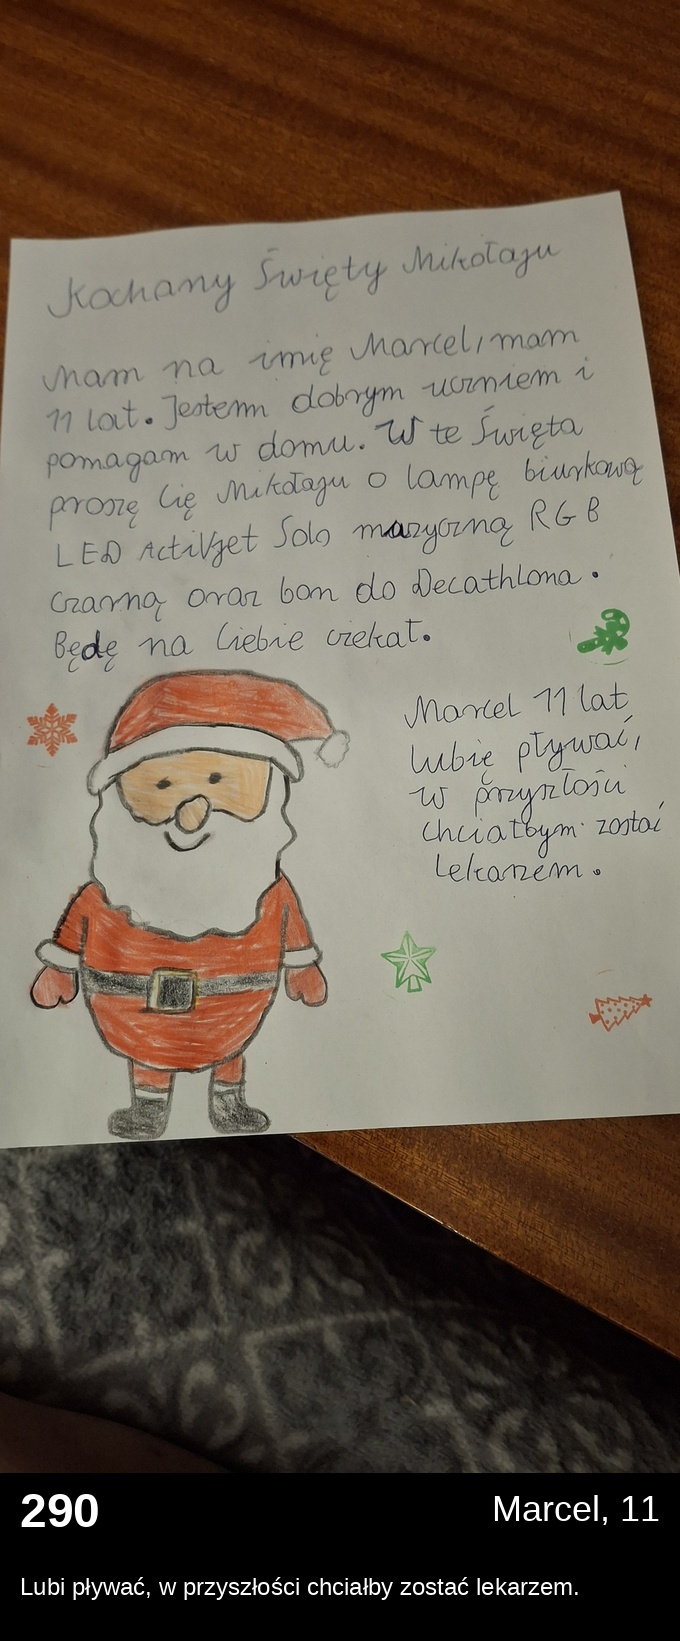 Kochany Święty Mikołaju
Mam na imię Marcel, mam
11 lat. Jestem dobrym uczniem i
pomagam w domu. W te Święta
proszę Cię Mikołaju o lampę biurkową
LED ActiVjet Solo mazyczną RGB
czarną oraz bon do Decathlona.
Będę na Ciebie czekał.
Marcel 11 lat
lubię pływać,
w przyszłości
chciałbym zostać
lekarzem.
290
Marcel, 11
Lubi pływać, w przyszłości chciałby zostać lekarzem.